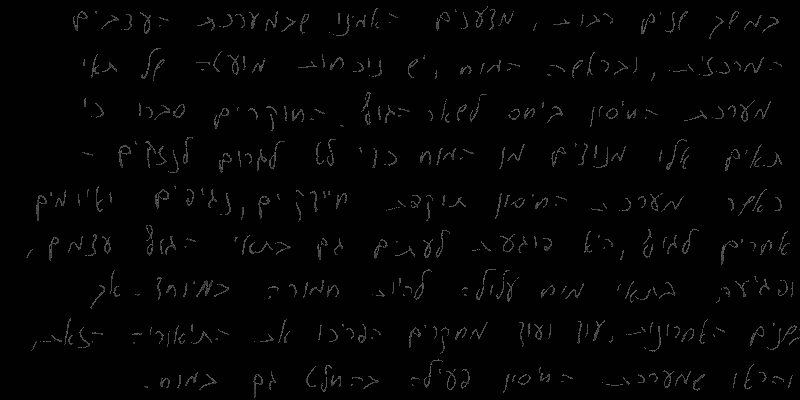 במשך שנים רבות, מדענים האמינו שבמערכת העצבים
המרכזית, ובראשה המוח, יש נוכחות מועטה של תאי
מערכת החיסון ביחס לשאר הגוף. החוקרים סברו כי
תאים אלו מנודים מן המוח כדי לא לגרום לנזקים -
כאשר מערכת החיסון תוקפת חיידקים, נגיפים ואיומים
אחרים לגוף, היא פוגעת לעתים גם בתאי הגוף עצמם,
ופגיעה בתאי מוח עלולה להיות חמורה במיוחד. אך
בשנים האחרונות, עוד ועוד מחקרים הפריכו את התיאוריה הזאת,
והראו שמערכת החיסון פעילה בהחלט גם במוח.